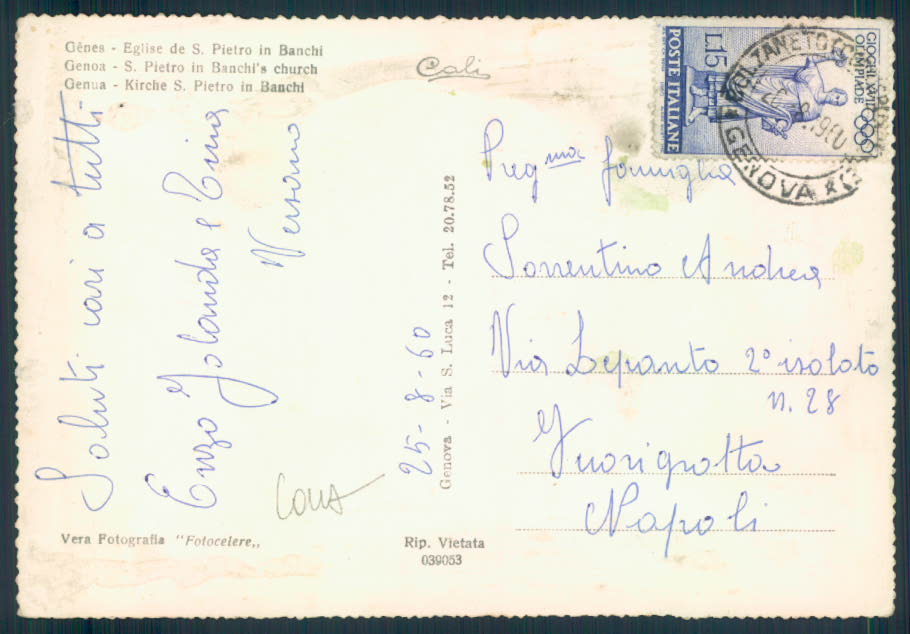 Gênes - Eglise de S. Pietro in Banchi
Genoa - S. Pietro in Banchi's church
Genua - Kirche S. Pietro in Banchi
Saluti cari a tutti
Enzo Jolanda e Tina
Versano
25-8-60
Genova - Via S. Luca 12 - Tel. 20.78.52
Vera Fotografia "Fotocelere„
Rip. Vietata
039053
POSTE ITALIANE
L.15
GIOCHI XVII
OLIMPIADE
BOLZANETO
GENOVA
Preg.ma famiglia
Sorrentino Andrea
Via Lepanto 2° isolato
n. 28
Fuorigrotta
Napoli